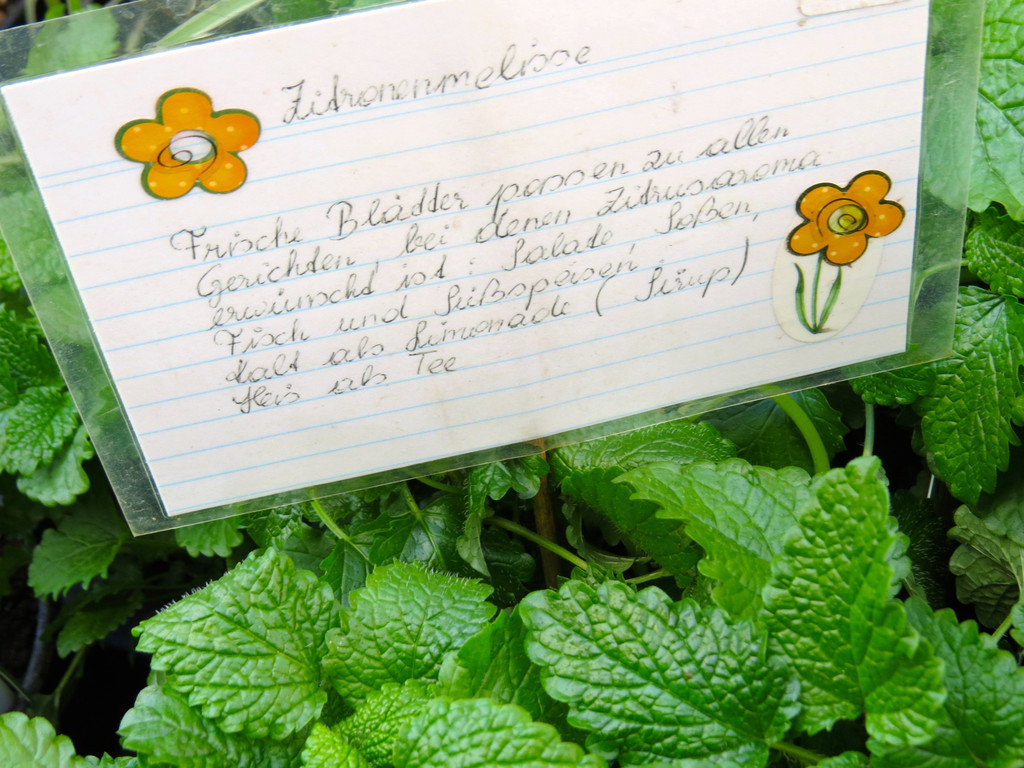 Zitronenmelisse
Frische Blätter passen zu allen
Gerichten, bei denen Zitrusaroma
erwünscht ist: Salate, Soßen,
Fisch und Süßspeisen,
kalt als Limonade (Sirup)
Heis als Tee